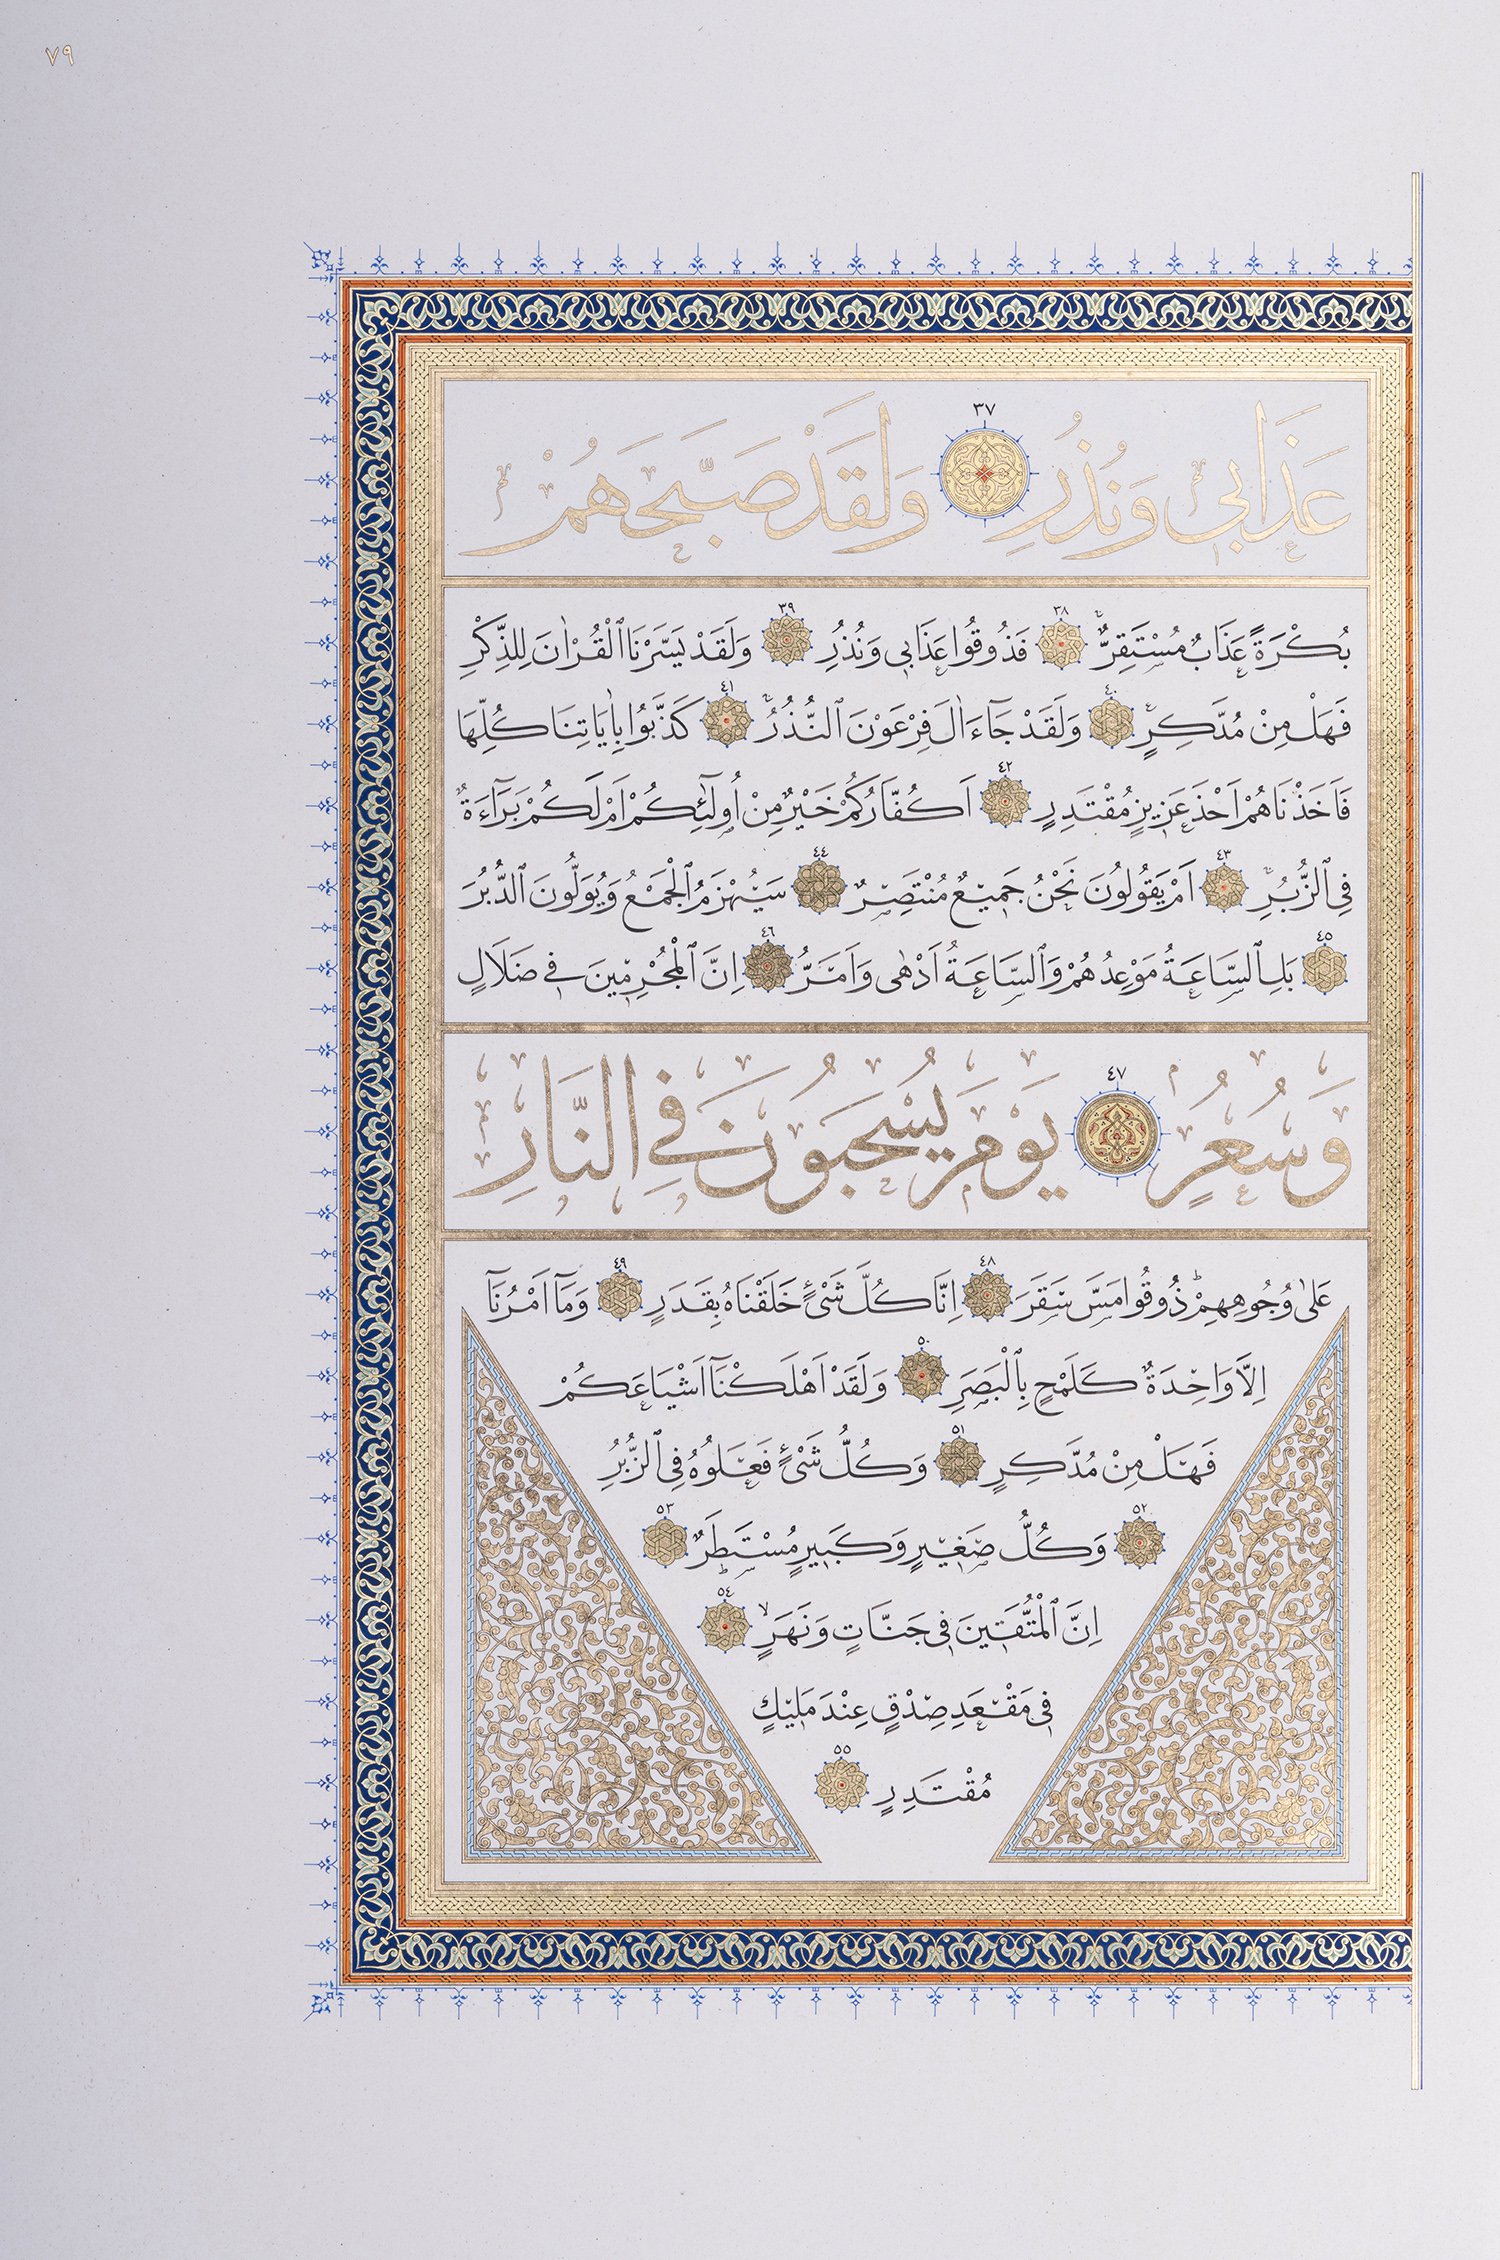 ٧٩
عَذَابِي وَنُذُرِ ٣٧ وَلَقَدْ صَبَّحَهُمْ
بُكْرَةً عَذَابٌ مُسْتَقِرٌّۚ ٣٨ فَذُوقُوا عَذَابِي وَنُذُرِ ٣٩ وَلَقَدْ يَسَّرْنَا ٱلْقُرْاٰنَ لِلذِّكْرِ
فَهَلْ مِنْ مُدَّكِرٍ ٤٠ وَلَقَدْ جَآءَ اٰلَ فِرْعَوْنَ ٱلنُّذُرُۚ ٤١ كَذَّبُوا بِاٰيَاتِنَا كُلِّهَا
فَاَخَذْنَاهُمْ اَخْذَ عَزِيزٍ مُقْتَدِرٍ ٤٢ اَكُفَّارُكُمْ خَيْرٌ مِنْ اُولٰٓئِكُمْ اَمْ لَكُمْ بَرَآءَةٌ
فِي ٱلزُّبُرِۚ ٤٣ اَمْ يَقُولُونَ نَحْنُ جَمِيعٌ مُنْتَصِرٌ ٤٤ سَيُهْزَمُ ٱلْجَمْعُ وَيُوَلُّونَ ٱلدُّبُرَ
٤٥ بَلِ ٱلسَّاعَةُ مَوْعِدُهُمْ وَٱلسَّاعَةُ اَدْهٰى وَاَمَرُّ ٤٦ اِنَّ ٱلْمُجْرِمِينَ فِي ضَلَالٍ
وَسُعُرٍ ٤٧ يَوْمَ يُسْحَبُونَ فِي النَّارِ
عَلٰى وُجُوهِهِمْ ذُوقُوا مَسَّ سَقَرَ ٤٨ اِنَّا كُلَّ شَيْءٍ خَلَقْنَاهُ بِقَدَرٍ ٤٩ وَمَآ اَمْرُنَآ
اِلَّا وَاحِدَةٌ كَلَمْحٍ بِٱلْبَصَرِ ٥٠ وَلَقَدْ اَهْلَكْنَآ اَشْيَاعَكُمْ
فَهَلْ مِنْ مُدَّكِرٍ ٥١ وَكُلُّ شَيْءٍ فَعَلُوهُ فِي ٱلزُّبُرِ
٥٢ وَكُلُّ صَغِيرٍ وَكَبِيرٍ مُسْتَطَرٌ ٥٣
اِنَّ ٱلْمُتَّقِينَ فِي جَنَّاتٍ وَنَهَرٍۙ ٥٤
فِي مَقْعَدِ صِدْقٍ عِنْدَ مَلِيكٍ
مُقْتَدِرٍ ٥٥